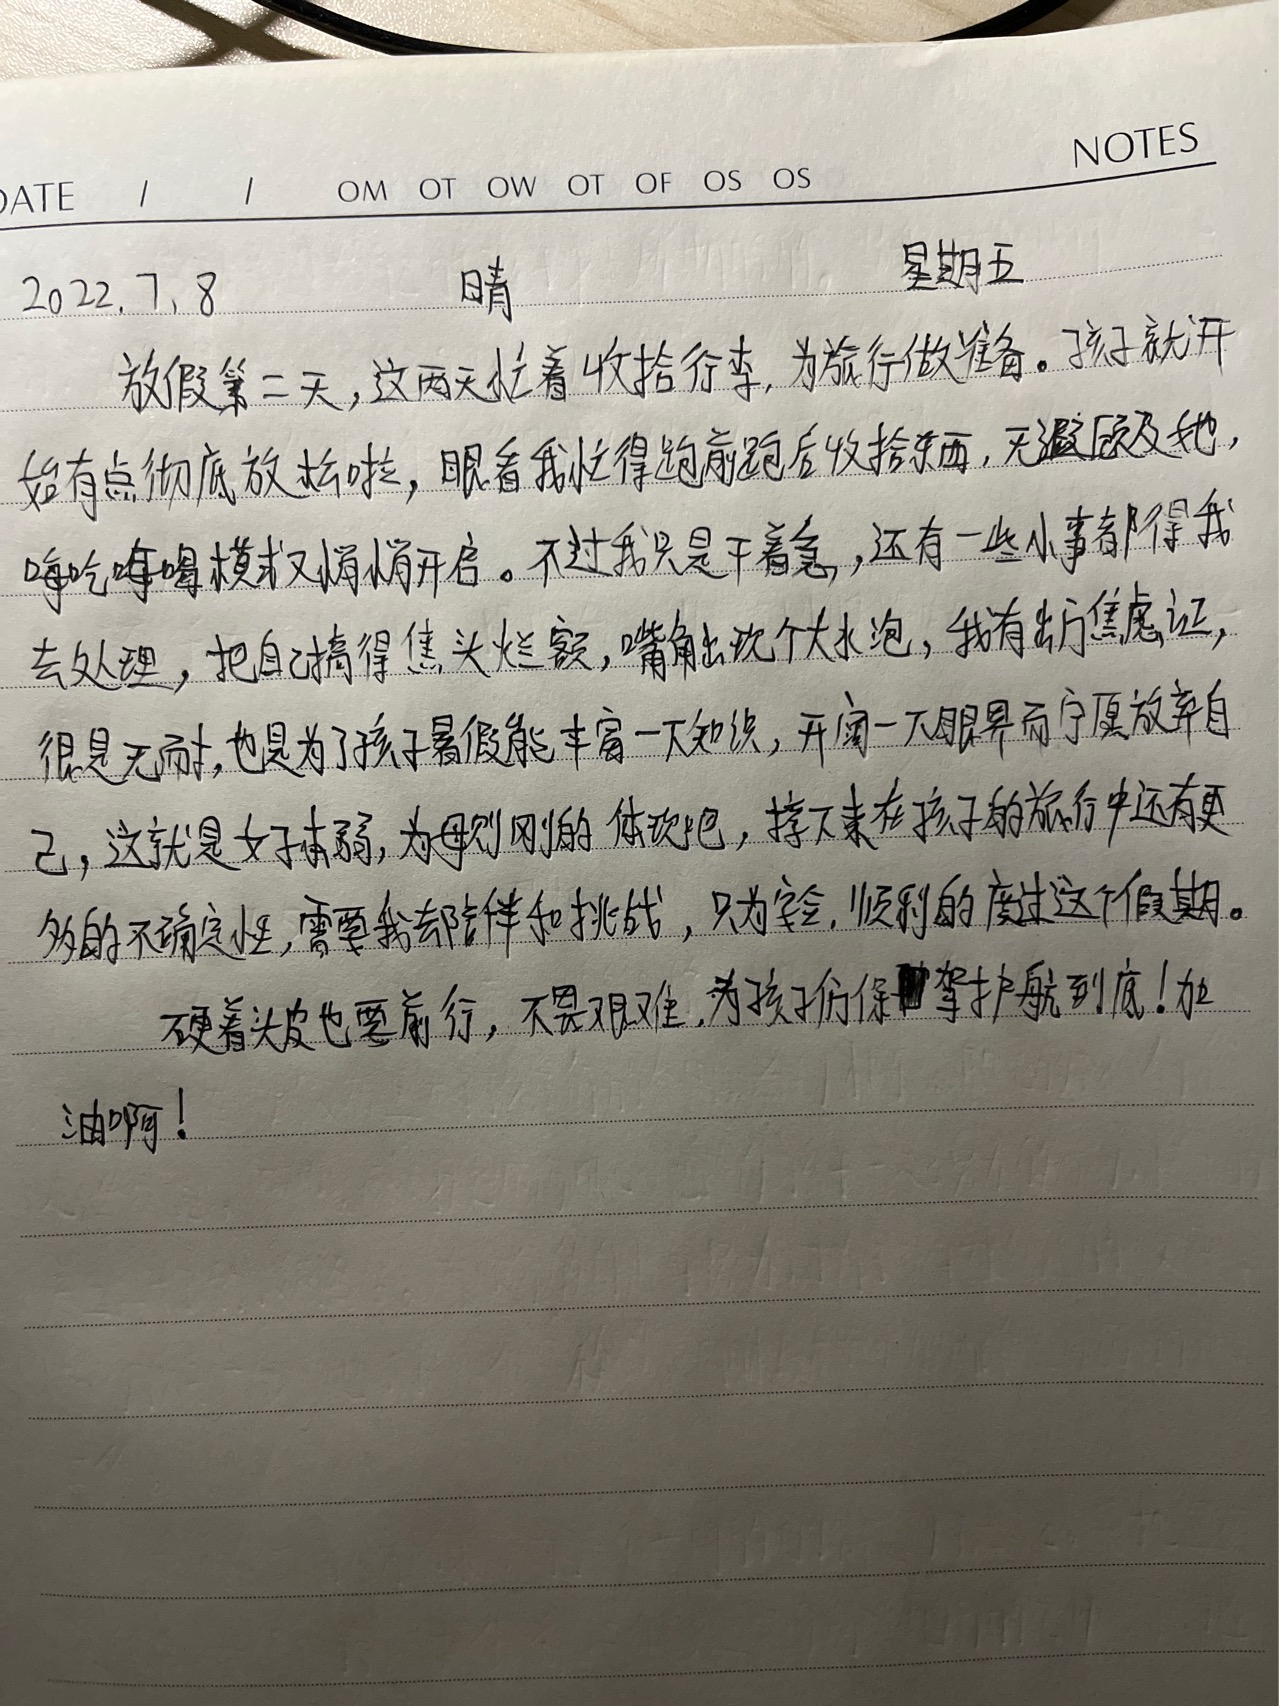 DATE / / OM OT OW OT OF OS OS NOTES
2022.7.8 晴 星期五
放假第二天，这两天忙着收拾行李，为旅行做准备。孩子就开
始有点彻底放松啦，眼看我忙得跑前跑后收拾东西，无暇顾及她，
海吃海喝模式又悄悄开启。不过我只是干着急，还有一些小事都得我
去处理，把自己搞得焦头烂额，嘴角出现个大水泡，我有出行焦虑证，
很是无耐，也是为了孩子暑假能丰富一下知识，开阔一下眼界而宁愿放弃自
己，这就是女子本弱，为母则刚的体现吧，接下来在孩子的旅行中还有更
多的不确定性，需要我去陪伴和挑战，只为安全，顺利的度过这个假期。
硬着头皮也要前行，不畏艰难，为孩子们保驾护航到底！加
油啊！